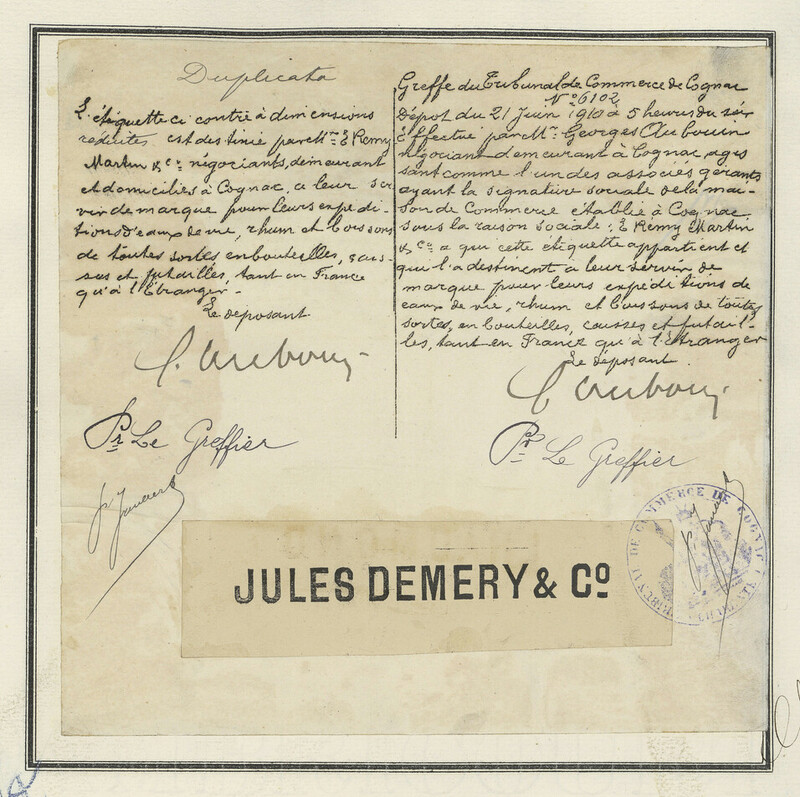 Duplicata
L'étiquette ci contre à dimensions
réduites est destinée par Mrs E Remy
Martin & Cie négociants, demeurant
et domiciliés à Cognac, a leur ser
vir de marque pour leurs expédi-
tions d'eaux de vie, rhum et boissons
de toutes sortes en bouteilles, cais-
ses et futailles, tant en France
qu'à l'Etranger.-
Le déposant
Pr Le Greffier
Greffe du Tribunal de Commerce de Cognac
No 6102
Dépot du 21 Juin 1910 à 5 heures du soir
Effectué par Mr Georges Aubouin
négociant demeurant à Cognac, agis
sant comme l'un des associés gérants
ayant la signature sociale de la mai-
son de Commerce établie à Cognac
sous la raison sociale: E Remy Martin
& Co a qui cette étiquette appartient et
qui l'a destinent a leur servir de
marque pour leurs expéditions de
eaux de vie, rhum et boissons de toutes
sortes, en bouteilles, caisses et futail-
les, tant en France qu'à l'Etranger
Le déposant
Pr Le Greffier
TRIBUNAL DE COMMERCE DE COGNAC
JULES DEMERY & Co